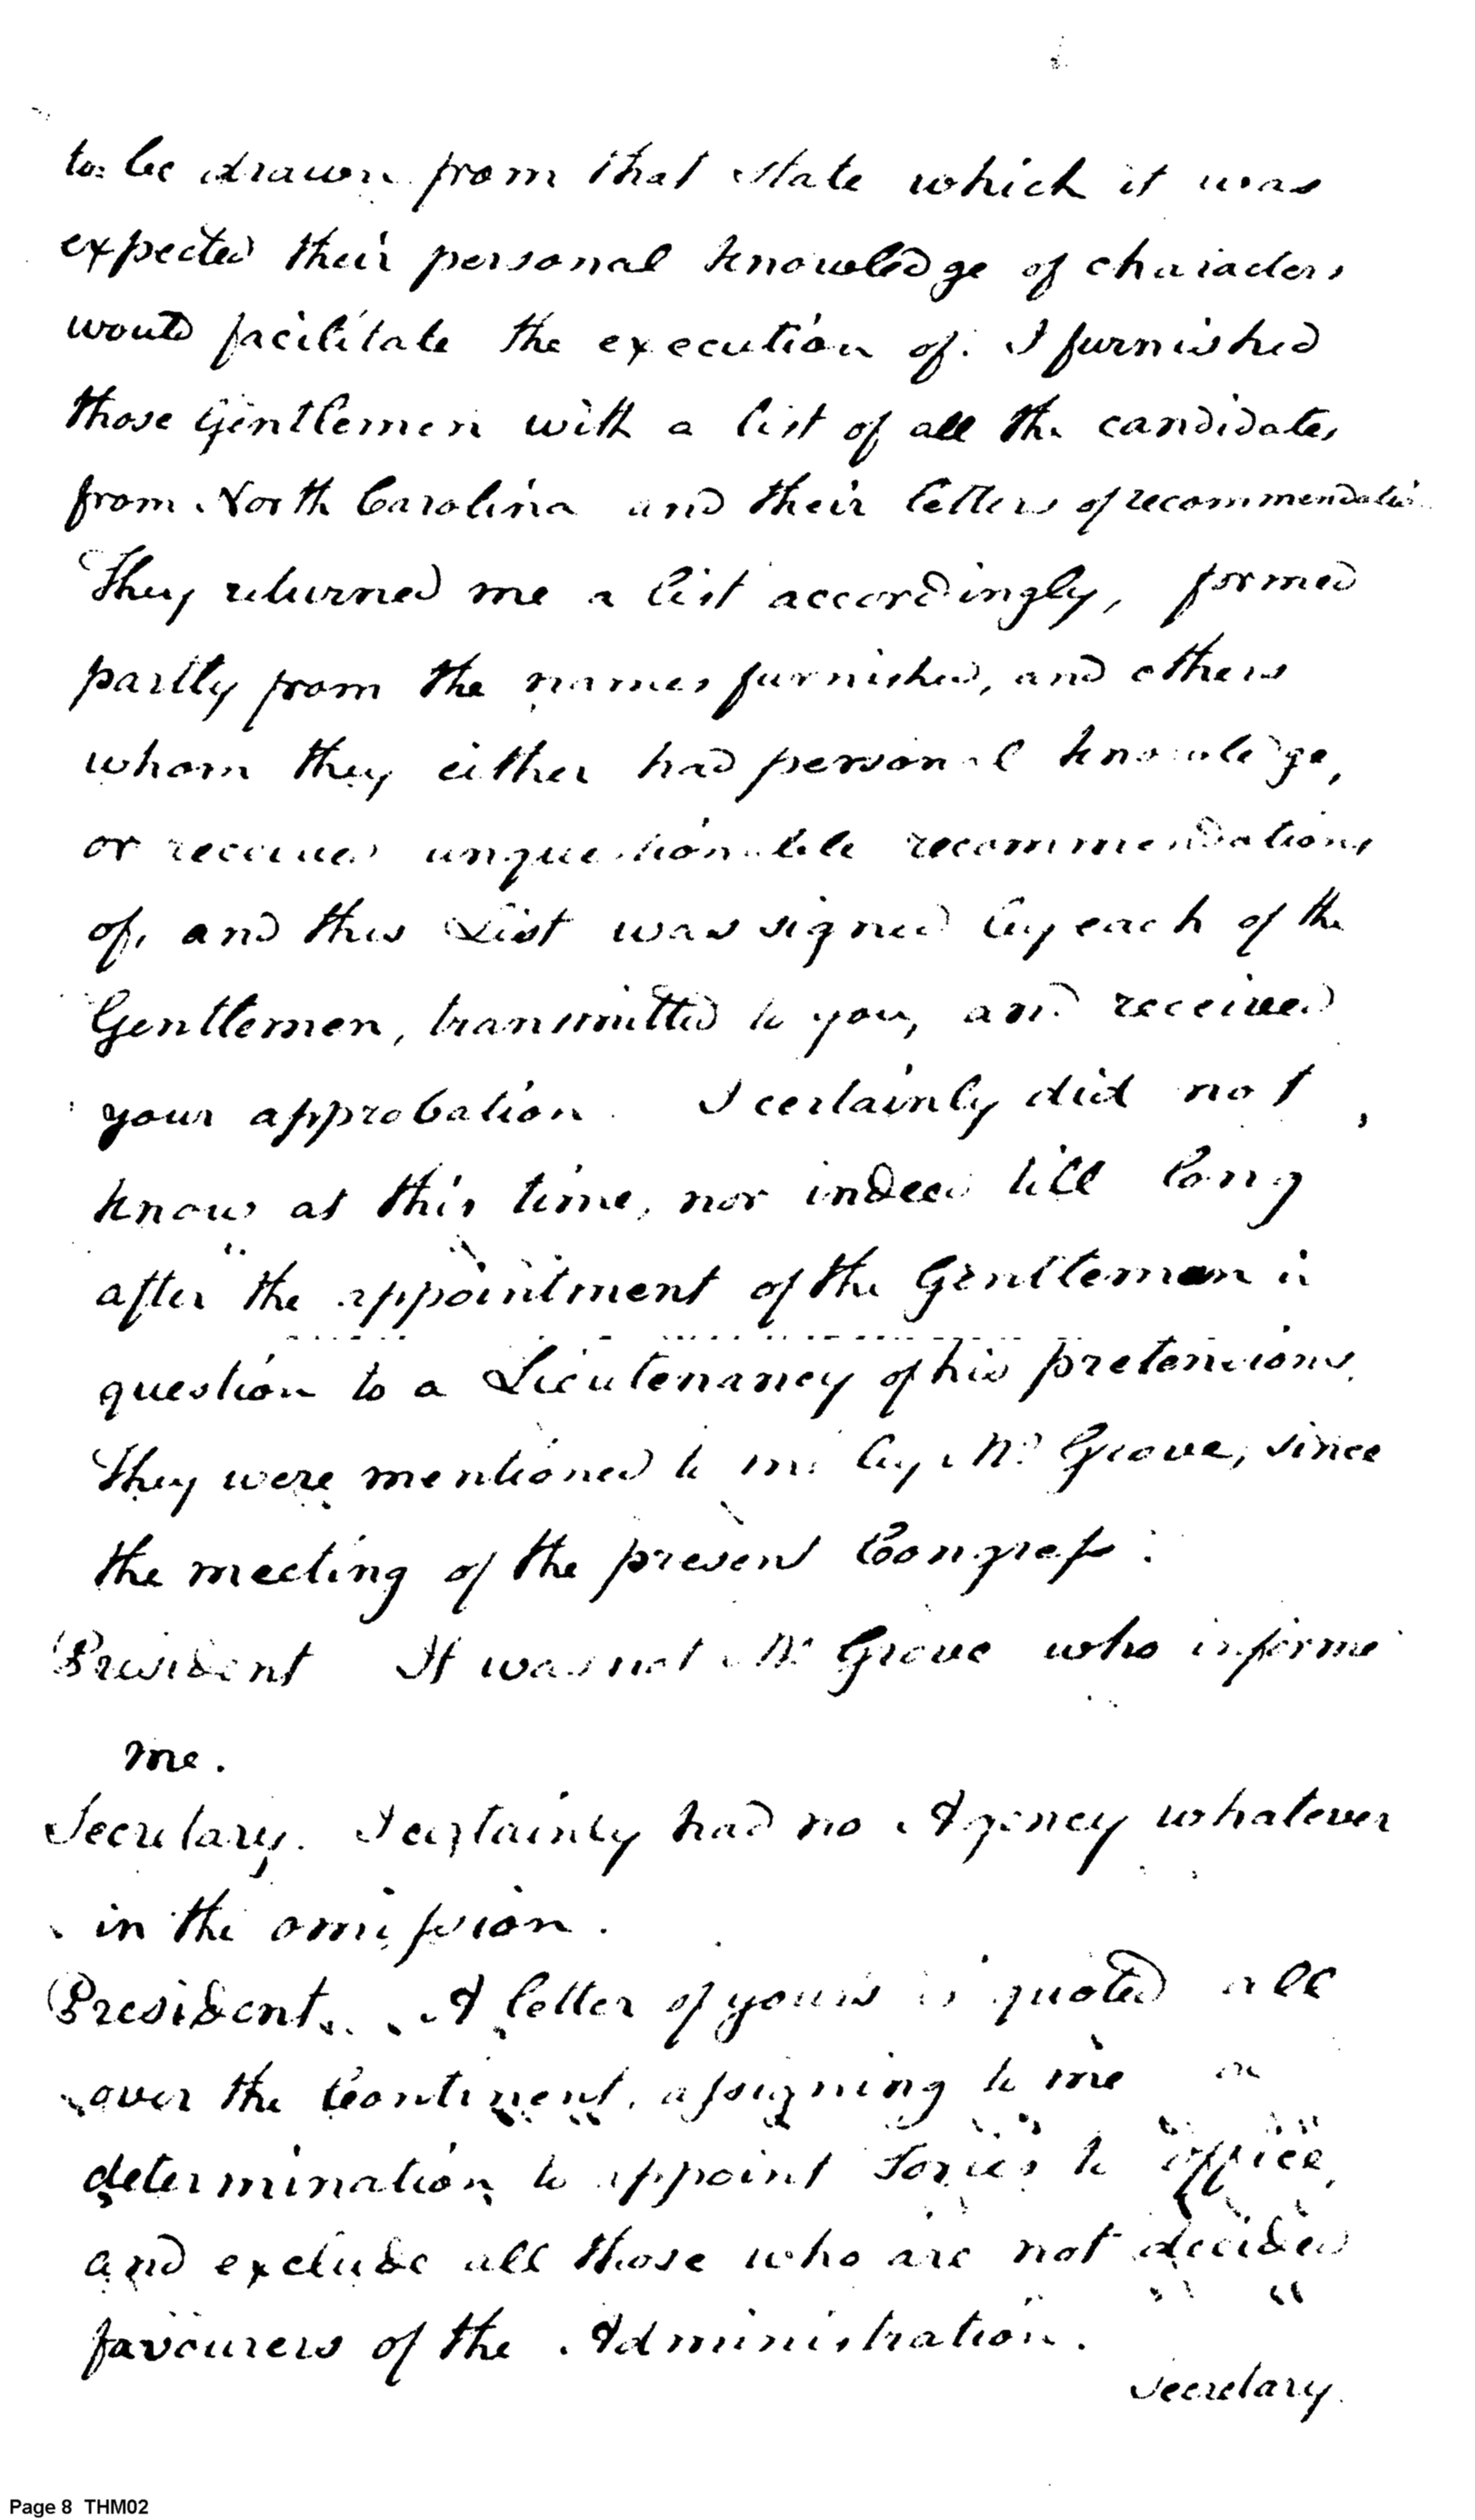 to be drawn from that State which it was
expected their personal knowledge of characters
would facilitate the execution of. I furnished
those Gentlemen with a list of all the candidates
from North Carolina and their letters of recommendation
They returned me a list accordingly, formed
partly from the names furnished, and others
whom they either had personal knowledge,
or received unquestionable recommendations
of, and this List was signed by each of the
Gentlemen, transmitted to you, and received
your approbation. I certainly did not
know at this time, nor indeed till long
after the appointment of the Gentleman in
question to a Lieutenancy of his pretensions.
They were mentioned to me by Mr Grove, since
the meeting of the present Congress.
President It was not Mr Grove who informed
me.
Secretary. I certainly had no Agency whatever
in the omission.
President. A letter of yours is quoted all
over the Continent, assigning to me a
determination to appoint Tories to office,
and exclude all those who are not decided
favourers of the Administration.
Secretary.
Page 8 THM02